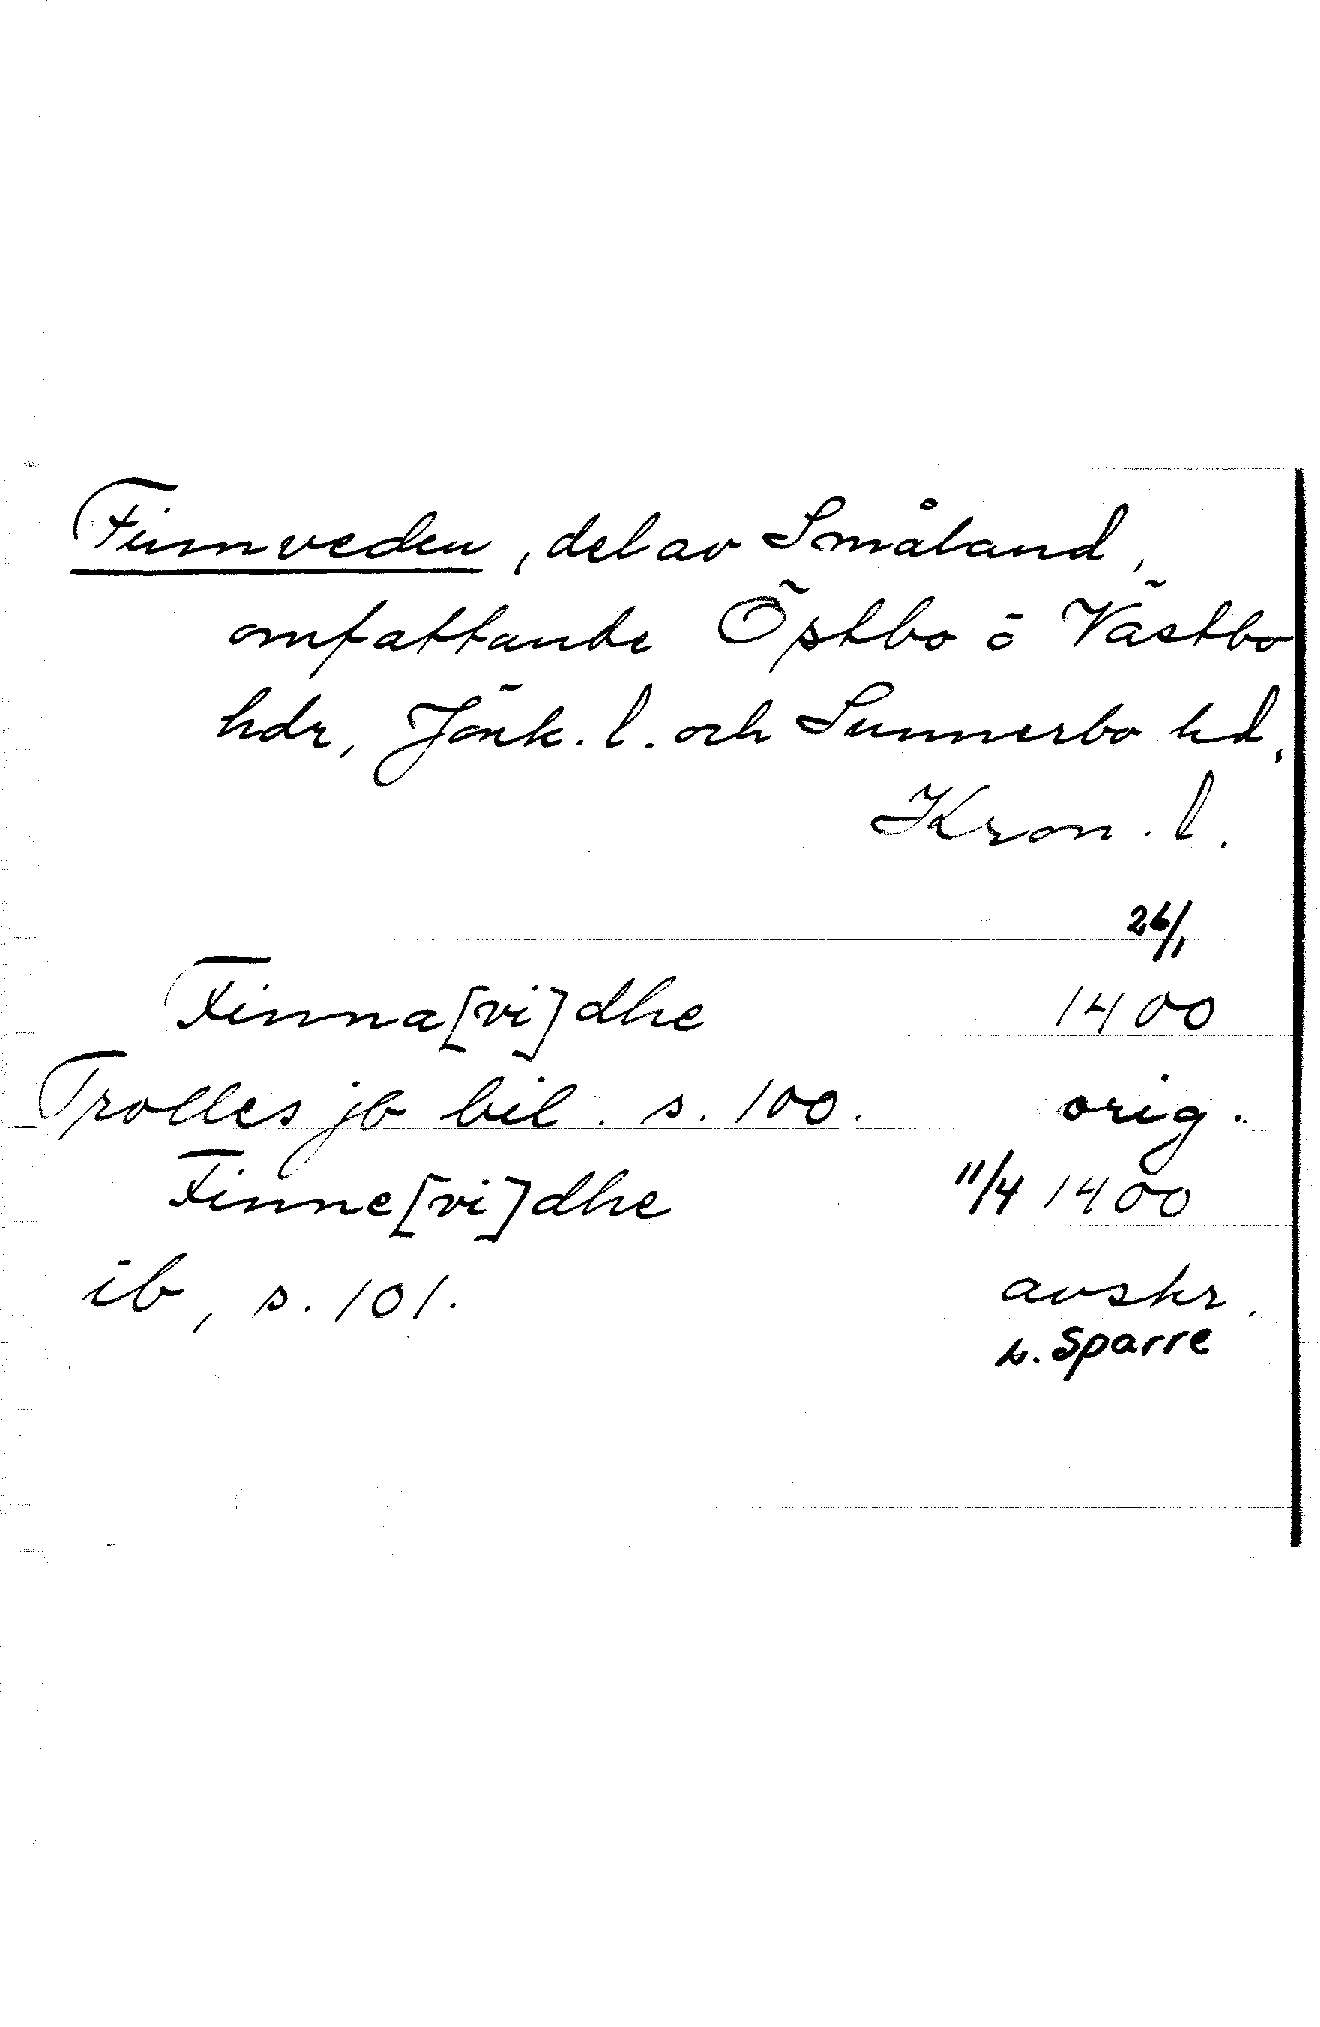 Finnveden, del av Småland,
omfattande Östbo o Västbo
hdr, Jönk. l. och Sunnerbo hd,
Kron. l.
26/1
Finna[vi]dhe 1400
Trolles jb bil. s. 100. orig.
Finne[vi]dhe 11/4 1400
ib, s. 101. avskr.
L. Sparre